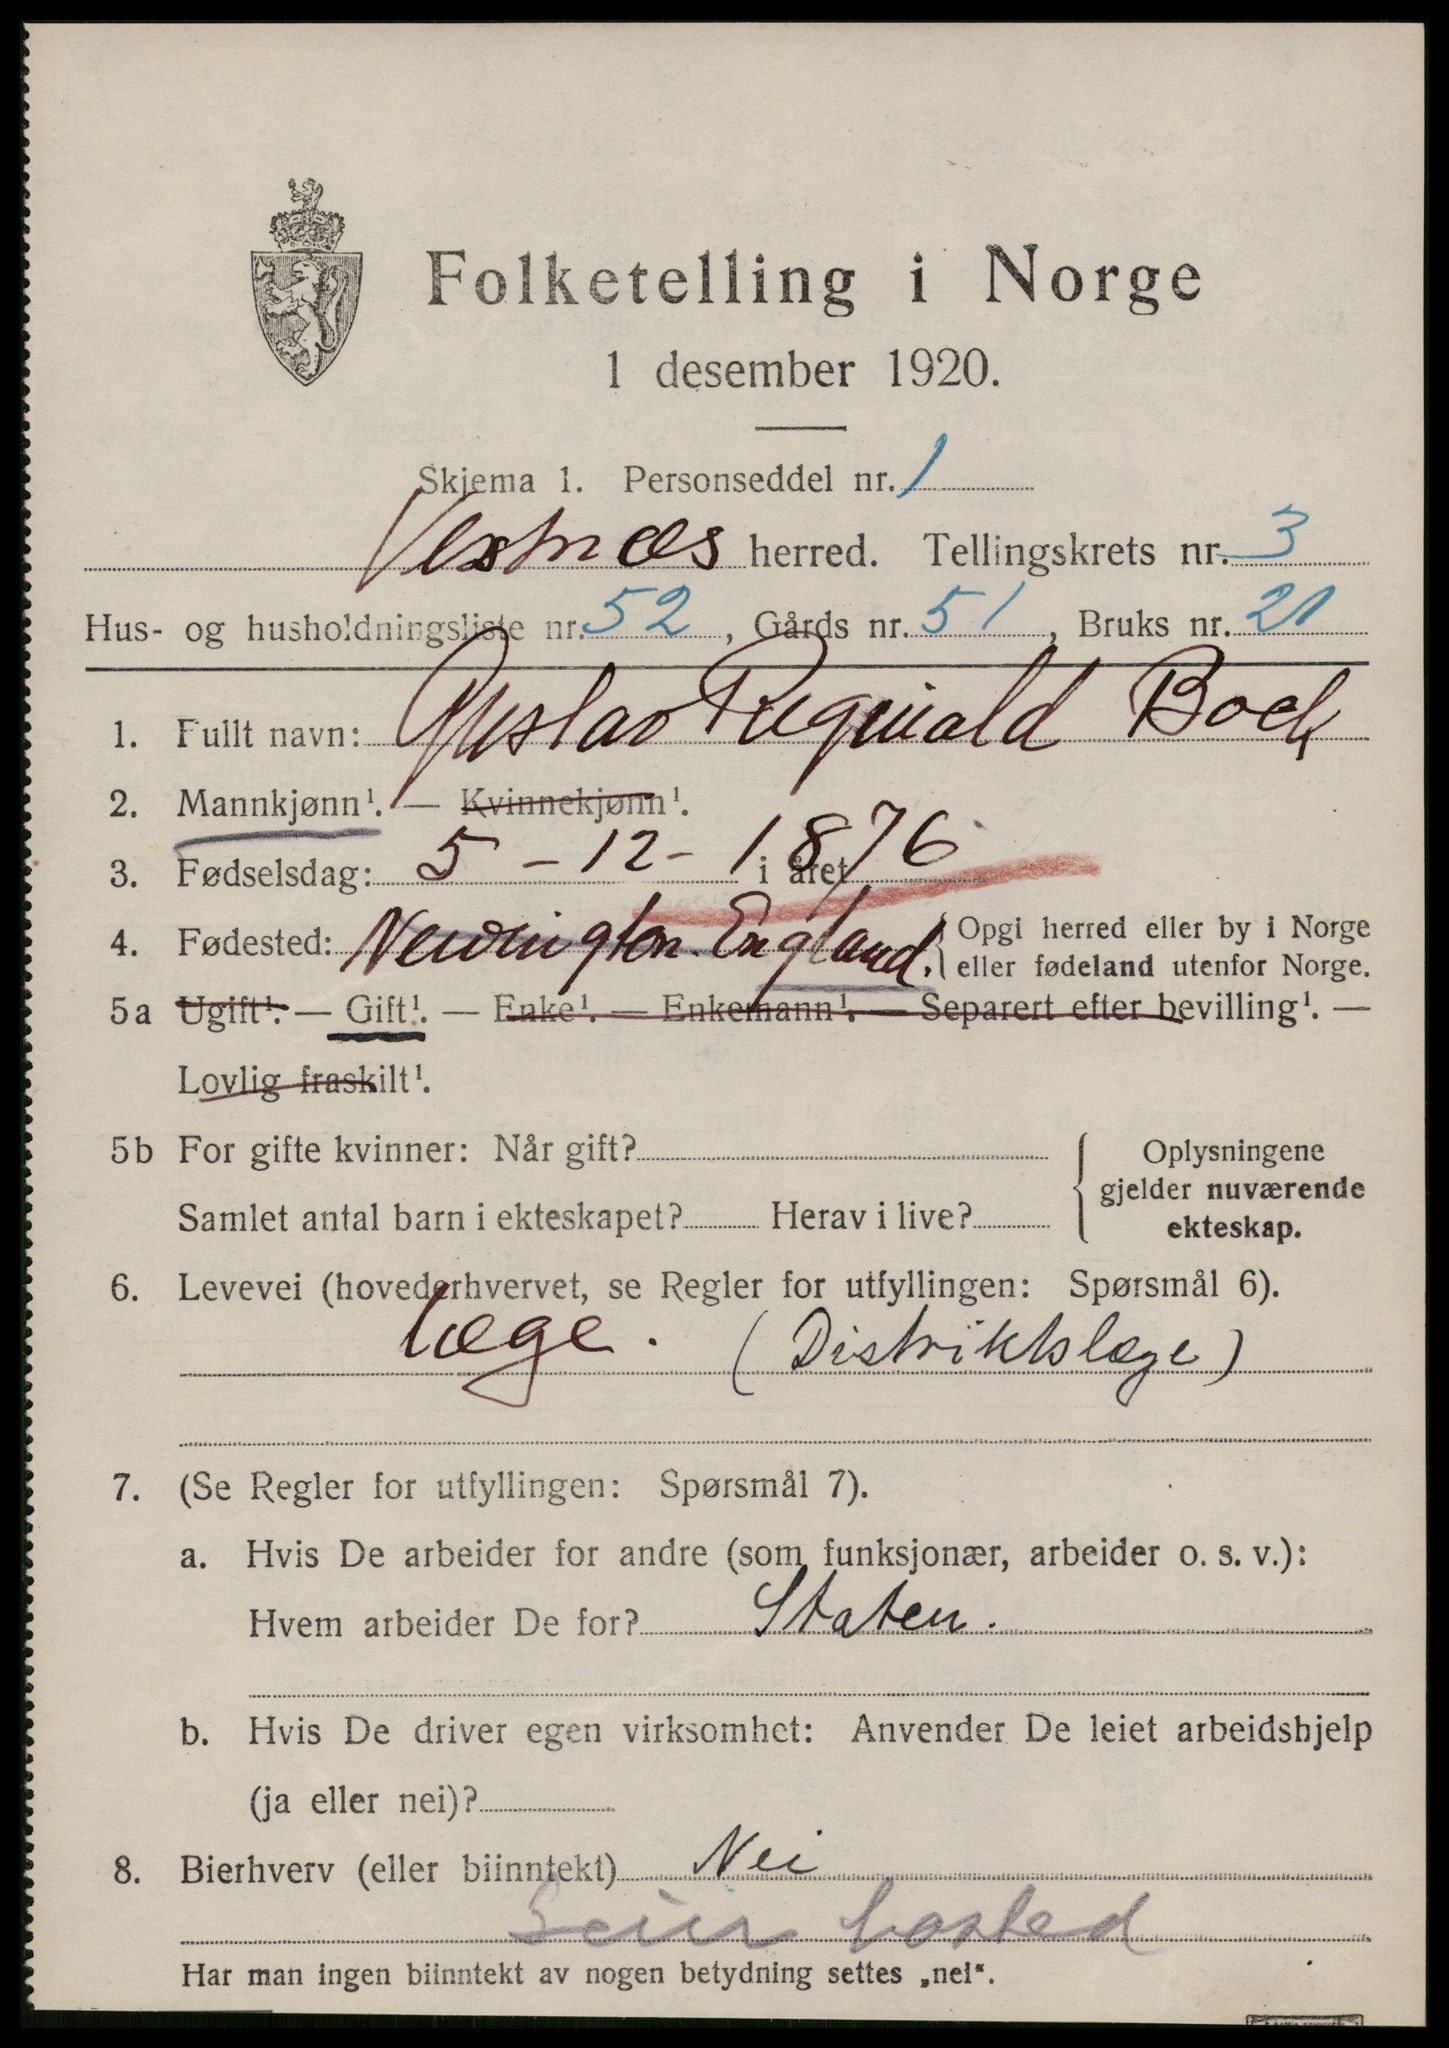 Folketelling i Norge
1 desember 1920.
Skjema 1. Personseddel nr. 1
Vestnæs herred. Tellingskrets nr. 3
Hus- og husholdningsliste nr. 52, Gårds nr. 51, Bruks nr. 21
1. Fullt navn: Gustav Reginald Bock
2. Mannkjønn¹. — Kvinnekjønn¹.
3. Fødselsdag: 5 - 12 - i året 1876.
4. Fødested: Newington. England. { Opgi herred eller by i Norge
eller fødeland utenfor Norge.
5a Ugift¹. — Gift¹. — Enke¹. — Enkemann¹. — Separert efter bevilling¹. —
Lovlig fraskilt¹.
5b For gifte kvinner: Når gift?
Samlet antal barn i ekteskapet? Herav i live?
{ Oplysningene
gjelder nuværende
ekteskap.
6. Levevei (hovederhvervet, se Regler for utfyllingen: Spørsmål 6).
læge. (Distriktslæge)
7. (Se Regler for utfyllingen: Spørsmål 7).
a. Hvis De arbeider for andre (som funksjonær, arbeider o. s. v.):
Hvem arbeider De for? Staten.
b. Hvis De driver egen virksomhet: Anvender De leiet arbeidshjelp
(ja eller nei)?
8. Bierhverv (eller biinntekt) Nei
bosted
Har man ingen biinntekt av nogen betydning settes „nei“.